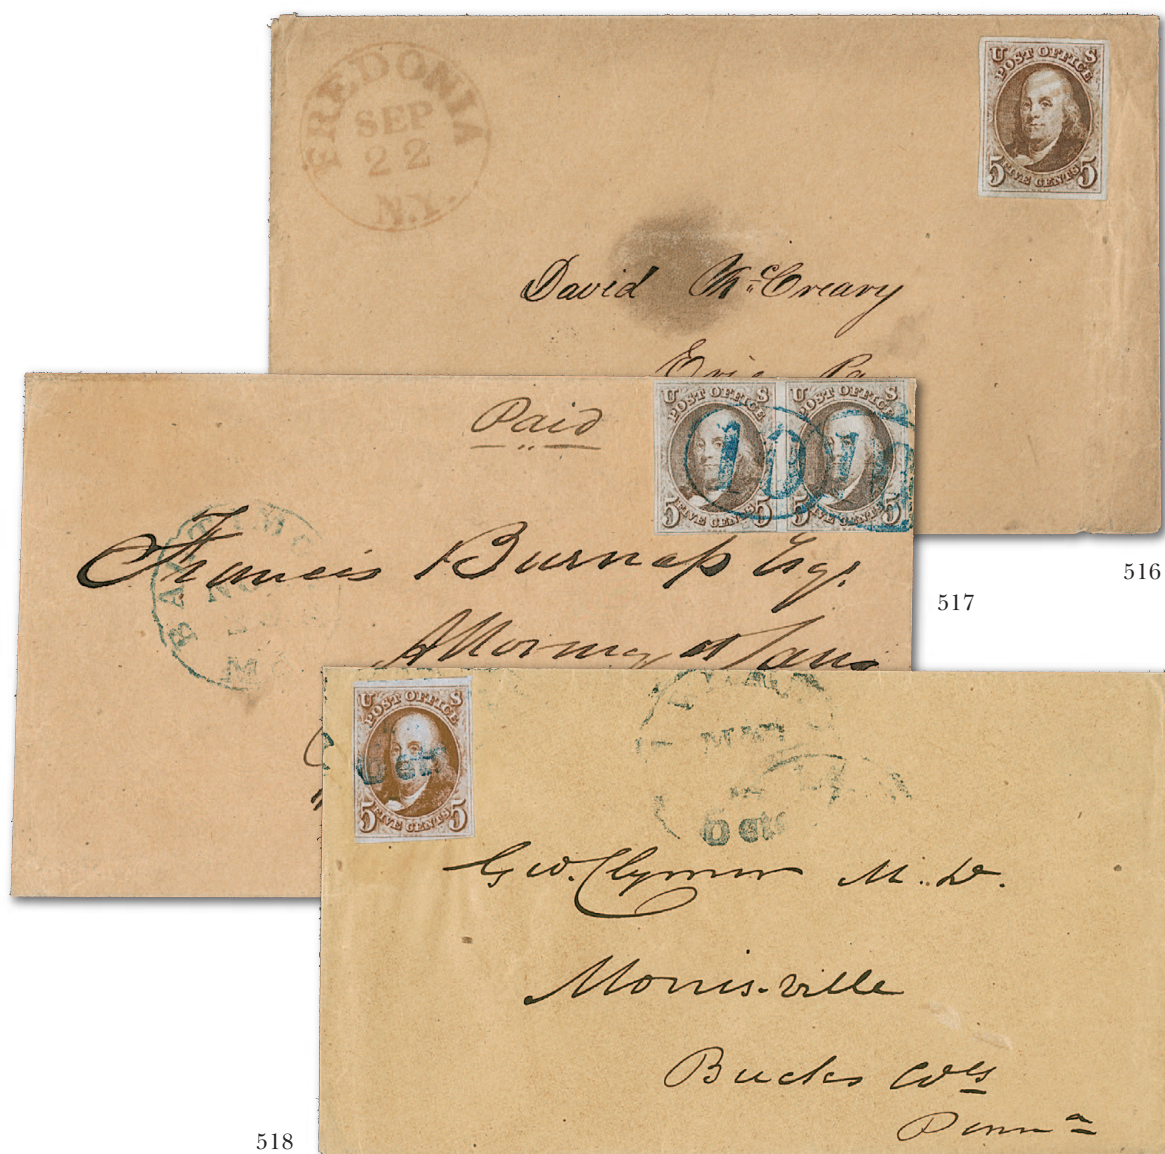 FREDONIA
SEP
22
N.Y.
U S
POST OFFICE
5 FIVE CENTS 5
David McCreary
Erie Pa
516
Paid
U S
POST OFFICE
5 FIVE CENTS 5
U S
POST OFFICE
5 FIVE CENTS 5
10
10
Francis Burnap Esqr.
Attorney at Law
MD
517
U S
POST OFFICE
5 FIVE CENTS 5
MAR
Geo. Clymer M.D.
Morrisville
Bucks Co
Penna
518